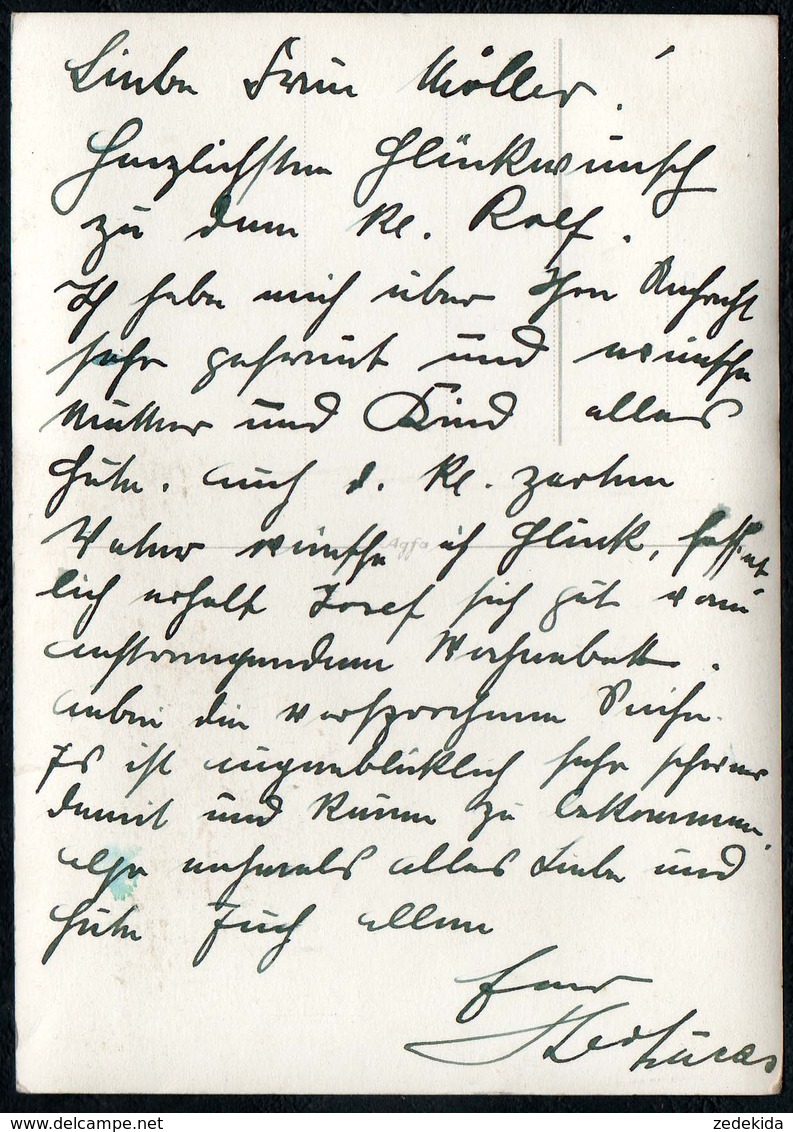 Liebe Frau Möller!
Herzlichsten Glückwunsch
zu dem kl. Rolf.
Ich habe mich über Ihre Nachricht
sehr gefreut und wünsche
Mutter und Kind alles
Gute. Auch d. kl. zarten
Vater wünsche ich Glück, hoffent
lich erholt Josef sich gut vom
anstrengenden Wochenbett.
Anbei die versprochene
Es ist augenblicklich sehr schwer
damit und kaum zu bekommen.
Also nochmals alles Liebe und
Gute Euch allen
Euer
Lucas
Agfa
zedekida